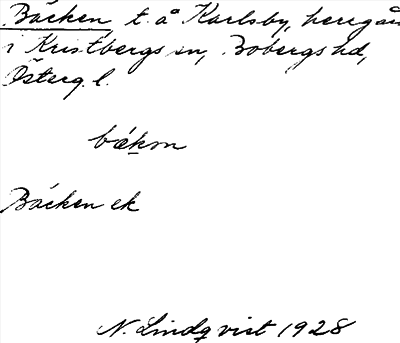 Bäcken t. å Karlsby, herrgår
i Kristbergs sn, Bobergs hd,
Österg. l.
bäkɘn
Bäcken ek
N. Lindqvist 1928